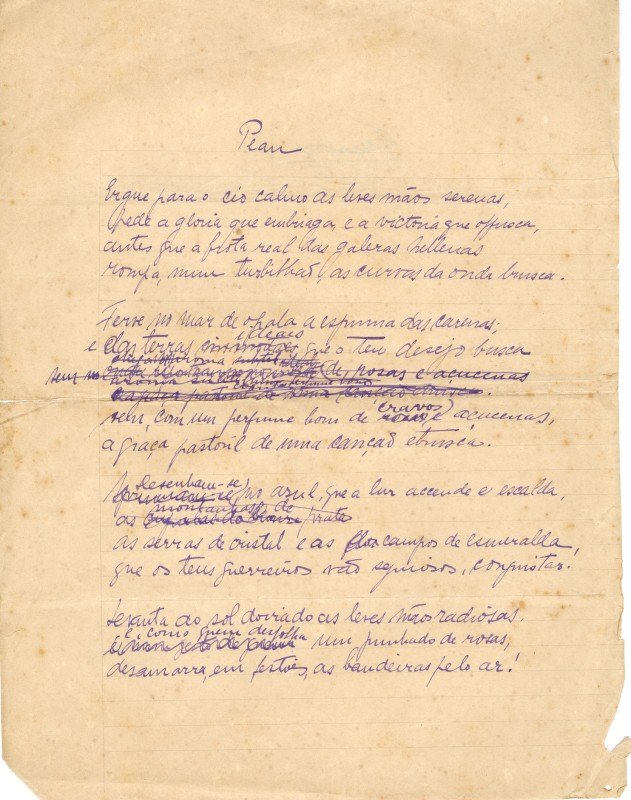 Pean
Ergue para o céo calmo as leves mãos serenas,
pede a gloria que embriaga, e a victoria que offusca,
antes que a frota real das galeras hellenas
rompa, num turbilhão, as curvas da onda brusca.
Ferve no mar de opala a espuma das carenas;
e das terras que o teu desejo busca
vem
de rosas e açucenas
vem, com um perfume bom de cravos e açucenas,
a graça pastoril de uma canção etrusca.
Desenham-se, no azul, que a luz accende e escalda,
as montanhas de prata
as serras de cristal e as campos de esmeralda
que os teus guerreiros vão sequiosos, conquistar!
Levanta ao sol doirado as leves mãos radiosas.
e, como quem desfolha um punhado de rosas,
desamarra, em festões, as bandeiras pelo ar!